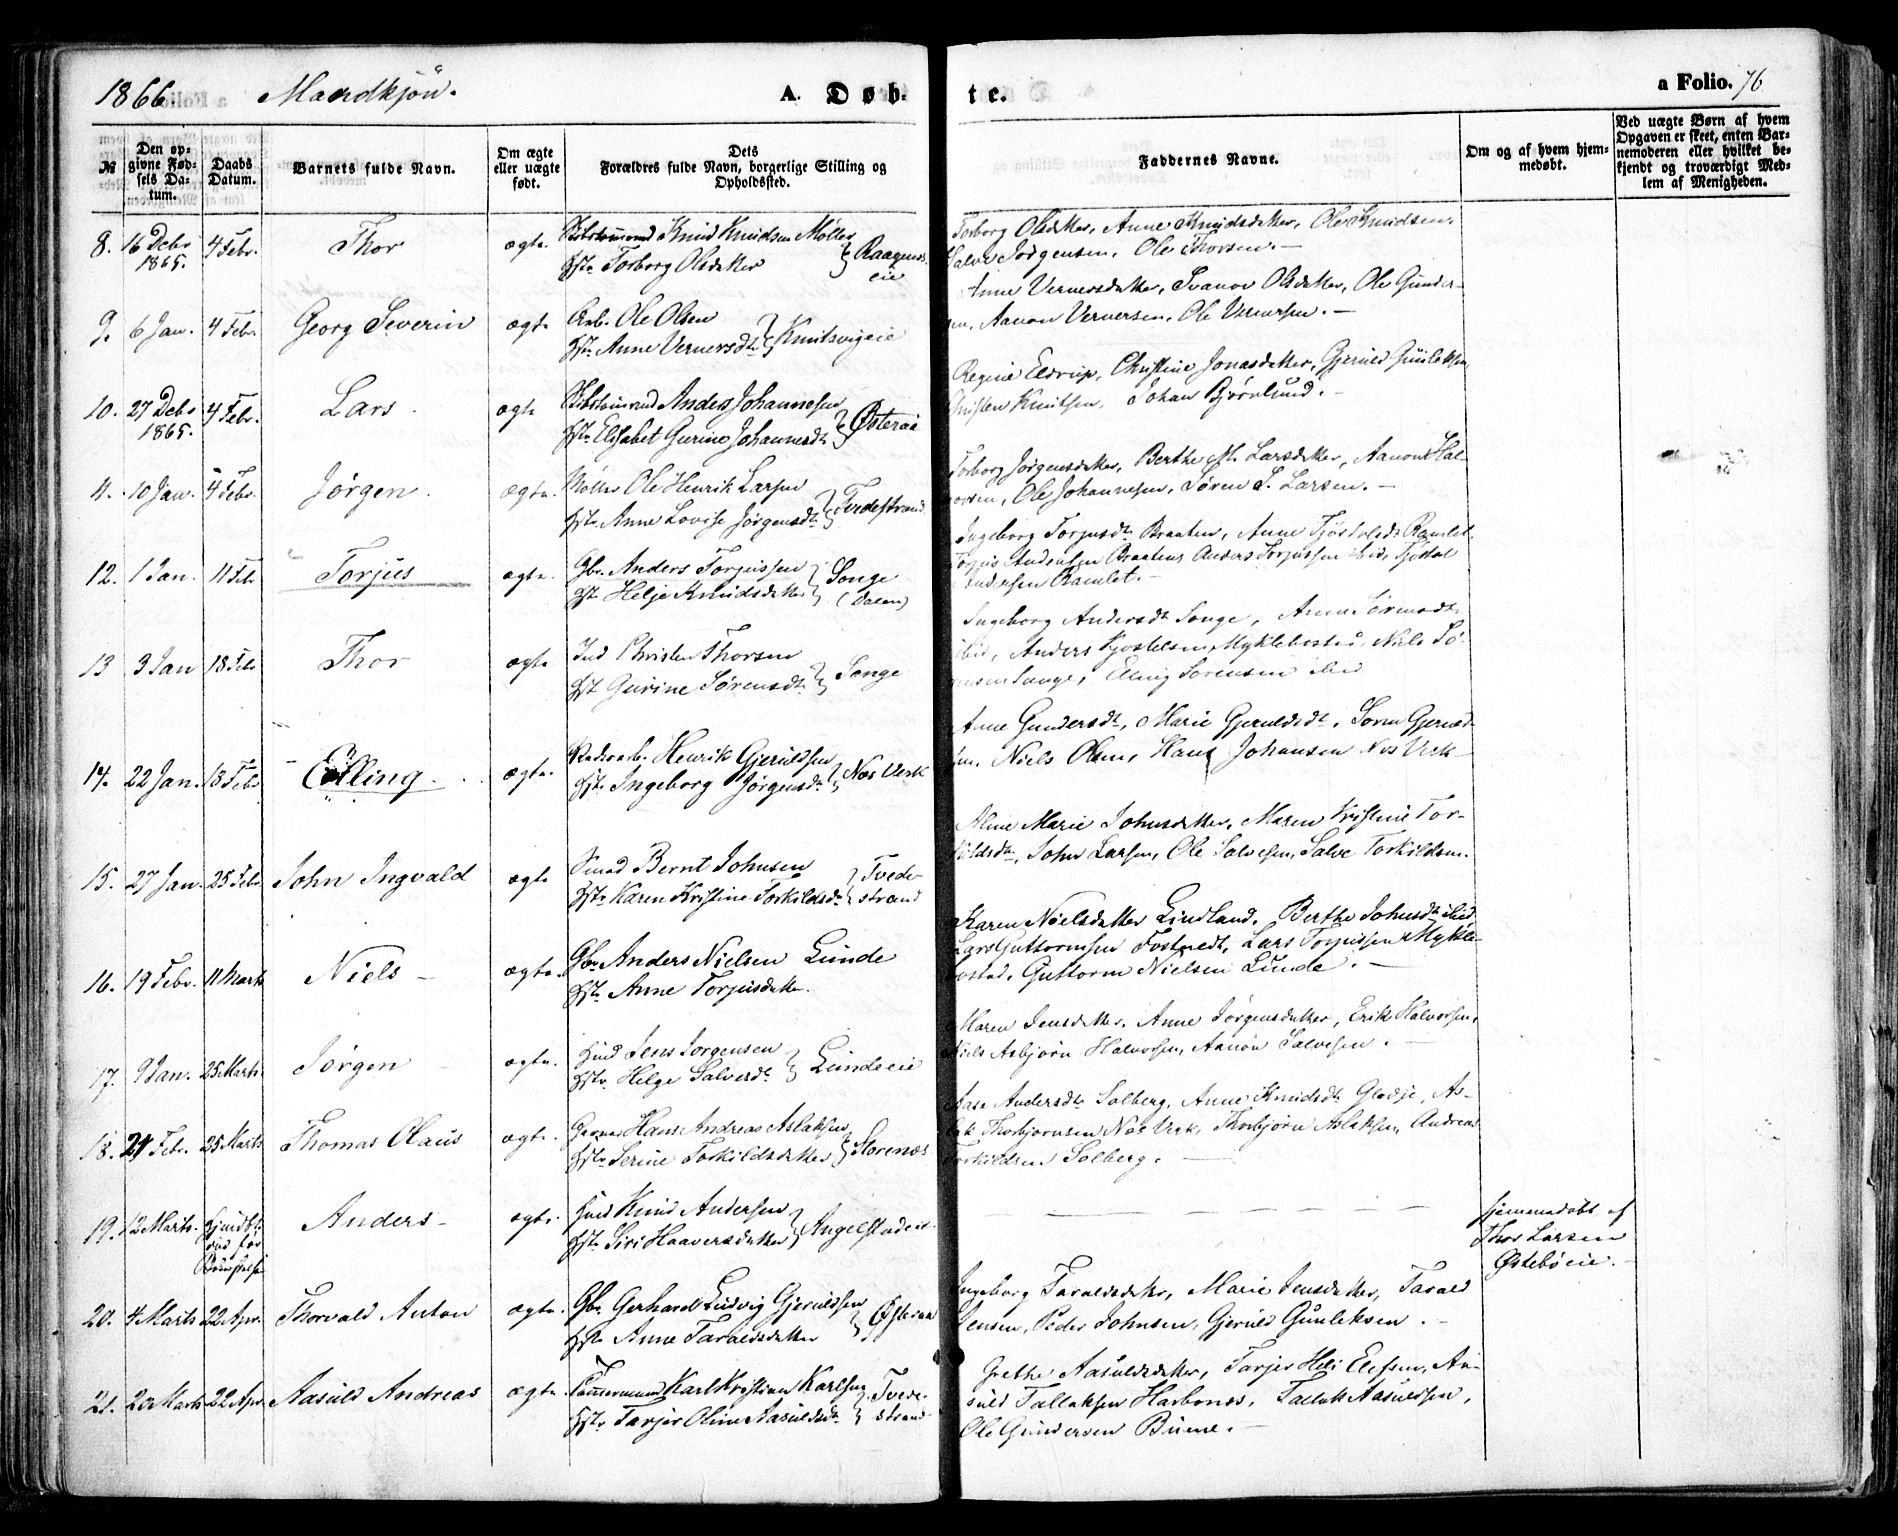 1866. Mandkjøn.
A. Døb-
te.
a Folio. 76
№
Den op-
givne Fød-
sels Da-
tum.
Daabs
Datum.
Barnets fulde Navn.
Om ægte
eller uægte
født.
Dets
Forældres fulde Navn, borgerlige Stilling og
Opholdssted.
Faddernes Navne.
Om og af hvem hjem-
medøbt.
Ved uægte Børn af hvem
Opgaven er skeet, enten Bar-
nemoderen eller hvilket be-
kjendt og troværdigt Med-
lem af Menigheden.
8. 16 Debr 1865. 4 Febr. Thor ægte. Knud Knudsen Møller
Hstr Torborg Olsdatter
Torborg Olsdatter, Anne Knudsdatter, Ole Knudsen.
Salve Jørgensen, Ole Thorsen.—
9. 6 Jan. 4 Febr. Georg Severin ægte Arb. Ole Olsen
Hstr. Anne Vernersdtr } Knutsvigeie
Anne Vernersdatter, Svanov Olsdatter, Ole Gunder-
sen, Aanon Vernersen, Ole Vernersen.—
10. 27 Debr 1865. 4 Febr. Lars ægte Anders Johannesen
Hstr Elisabet Gurine Johannesdt } Østeraa
Regine Eldrup, Christine Jonasdatter, Gjeruld Gunleksen
Christen Knutsen, Johan Bjørnlund.—
4. 10 Jan. 4 Febr. Jørgen. ægte. Møller Ole Henrik Larsen
Hstr Anne Lovise Jørgensdt } Tvedestrand
Torborg Jørgensdatter, Berthe M. Larsdatter, Aanon Hal-
vorsen, Ole Johannesen, Søren S. Larsen.—
12. 1 Jan. 11 Febr Torjus ægte. Gbr. Anders Torjussen
Hstr Helje Knudsdatter } Songe
(Dalen)
Ingeborg Torjusdt Braaten, Anne Tjøstolsdt Ramlet.
Torjus Andersen Braaten, Anders Torjussen ibid, Tjøstol
Andersen Ramlet.—
13 3 Jan 18 Febr Thor ægte Ind Christen Thorsen
Hst Gurine Sørensdt } Songe
Ingeborg Andersdt Songe, Anne Sørensdt
ibid, Anders Kjostelsen Myklebostad, Niels Sø-
rensen Songe, Elling Sørensen ibid
14. 22 Jan. 18 Febr Elling. ægte. Henrik Gjeruldsen
Hstr Ingeborg Jørgensdt } Næs Verk
Anne Gundersdt, Marie Gjeruldsdt, Søren Gjeruld-
sen, Niels Olsen, Hans Johansen Næs Verk—
15. 27 Jan. 25 Febr John Ingvald ægte Smed Bernt Johnsen
Hstr Karen Kristine Torkildsdt } Tvede-
strand
Aline Marie Johnsdatter, Maren Kristine Tor-
kildsdt, John Larsen, Ole Salvesen, Salve Torkildsen.
16. 19 Febr. 11 Marts Niels— ægte. Gbr. Anders Nielsen Lunde
Hstr Anne Torjusdatter.
Karen Nielsdatter Lindland, Berthe Johnsdt ibid
Lars Guttormsen Fostvedt, Lars Torjussen Mykle-
bostad, Guttorm Nielsen Lunde.—
17. 9 Jan. 25 Marts. Jørgen ægte. Hmd Jens Jørgensen
Hstr. Helge Salvesdt } Lundeeie
Maren Jensdatter, Anne Jørgensdatter, Erik Halvorsen,
Niels Asbjørn Halvorsen, Aanon Salvesen.—
18. 21 Febr. 25 Marts Thomas Olaus ægte. Hans Andreas Aslaksen
Hstr Serine Torkildsdatter } Storenæs
Aase Andersdt Solberg, Anne Knudsdt Glødje, As-
lak Thorbjørnsen Næs Verk, Thorbjørn Aslaksen, Andreas
Torkildsen Solberg.—
19. 12 Marts. Anders— ægte. Hmd Knud Andersen
Hstr Siri Haaversdatter } Angelstadeie
hjemmedøbt af
Thor Larsen
Østebøeie.—
20. 4 Marts 22 Apr. Thorvald Anton ægte. Gbr. Gerhard Ludvig Gjeruldsen
Hstr Anne Taraldsdatter } Østeraa
Ingeborg Taraldsdatter, Marie Jensdatter, Tarald
Jensen, Peder Johnsen, Gjeruld Gunleksen.—
21. 20 Marts 22 Apr. Aasuld Andreas ægte. Tømmermand Karl Kristian Karlsen
Hstr Tarjer Oline Aasuldsdt } Tvede-
strand
Grethe Aasuldsdatter, Tarjer Heli Elefsen, Aa-
suld Tallaksen Harbonæs, Tallak Aasuldsen,
Ole Gundersen Buene.—